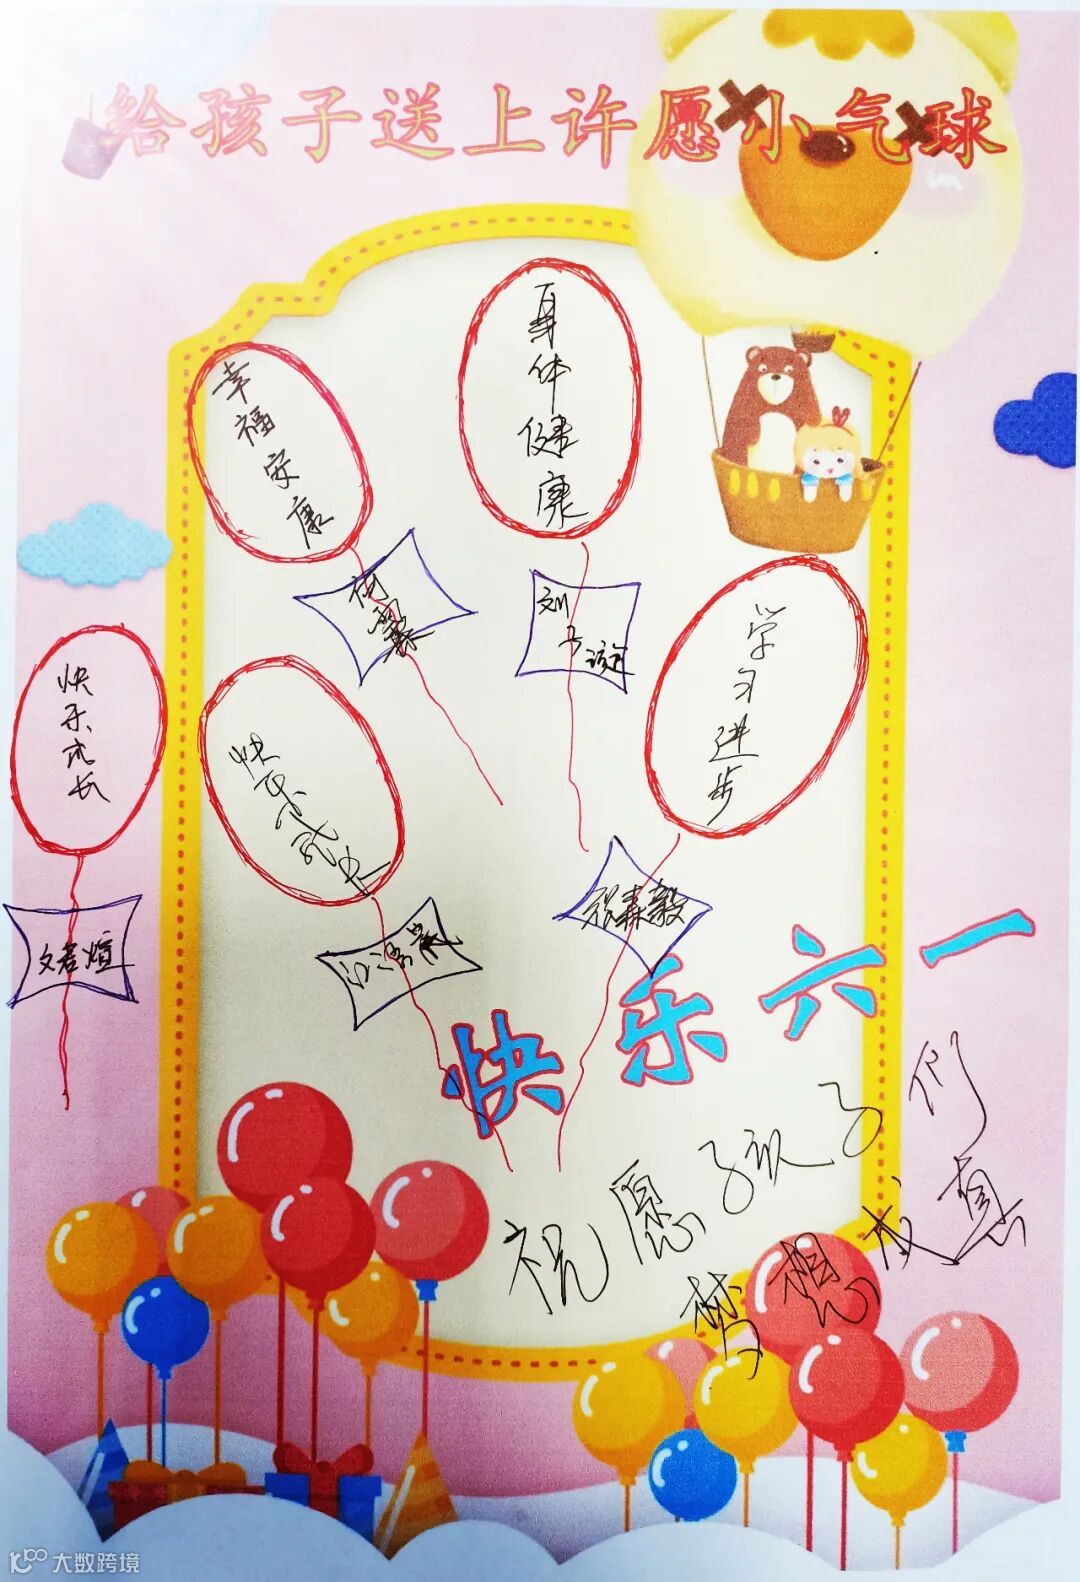 给孩子送上许愿小气球
幸福安康
身体健康
刘子漩
学习进步
快乐成长
快乐成长
文君煊
张森毅
快乐六一
祝愿孩子们
梦想成真
大数跨境